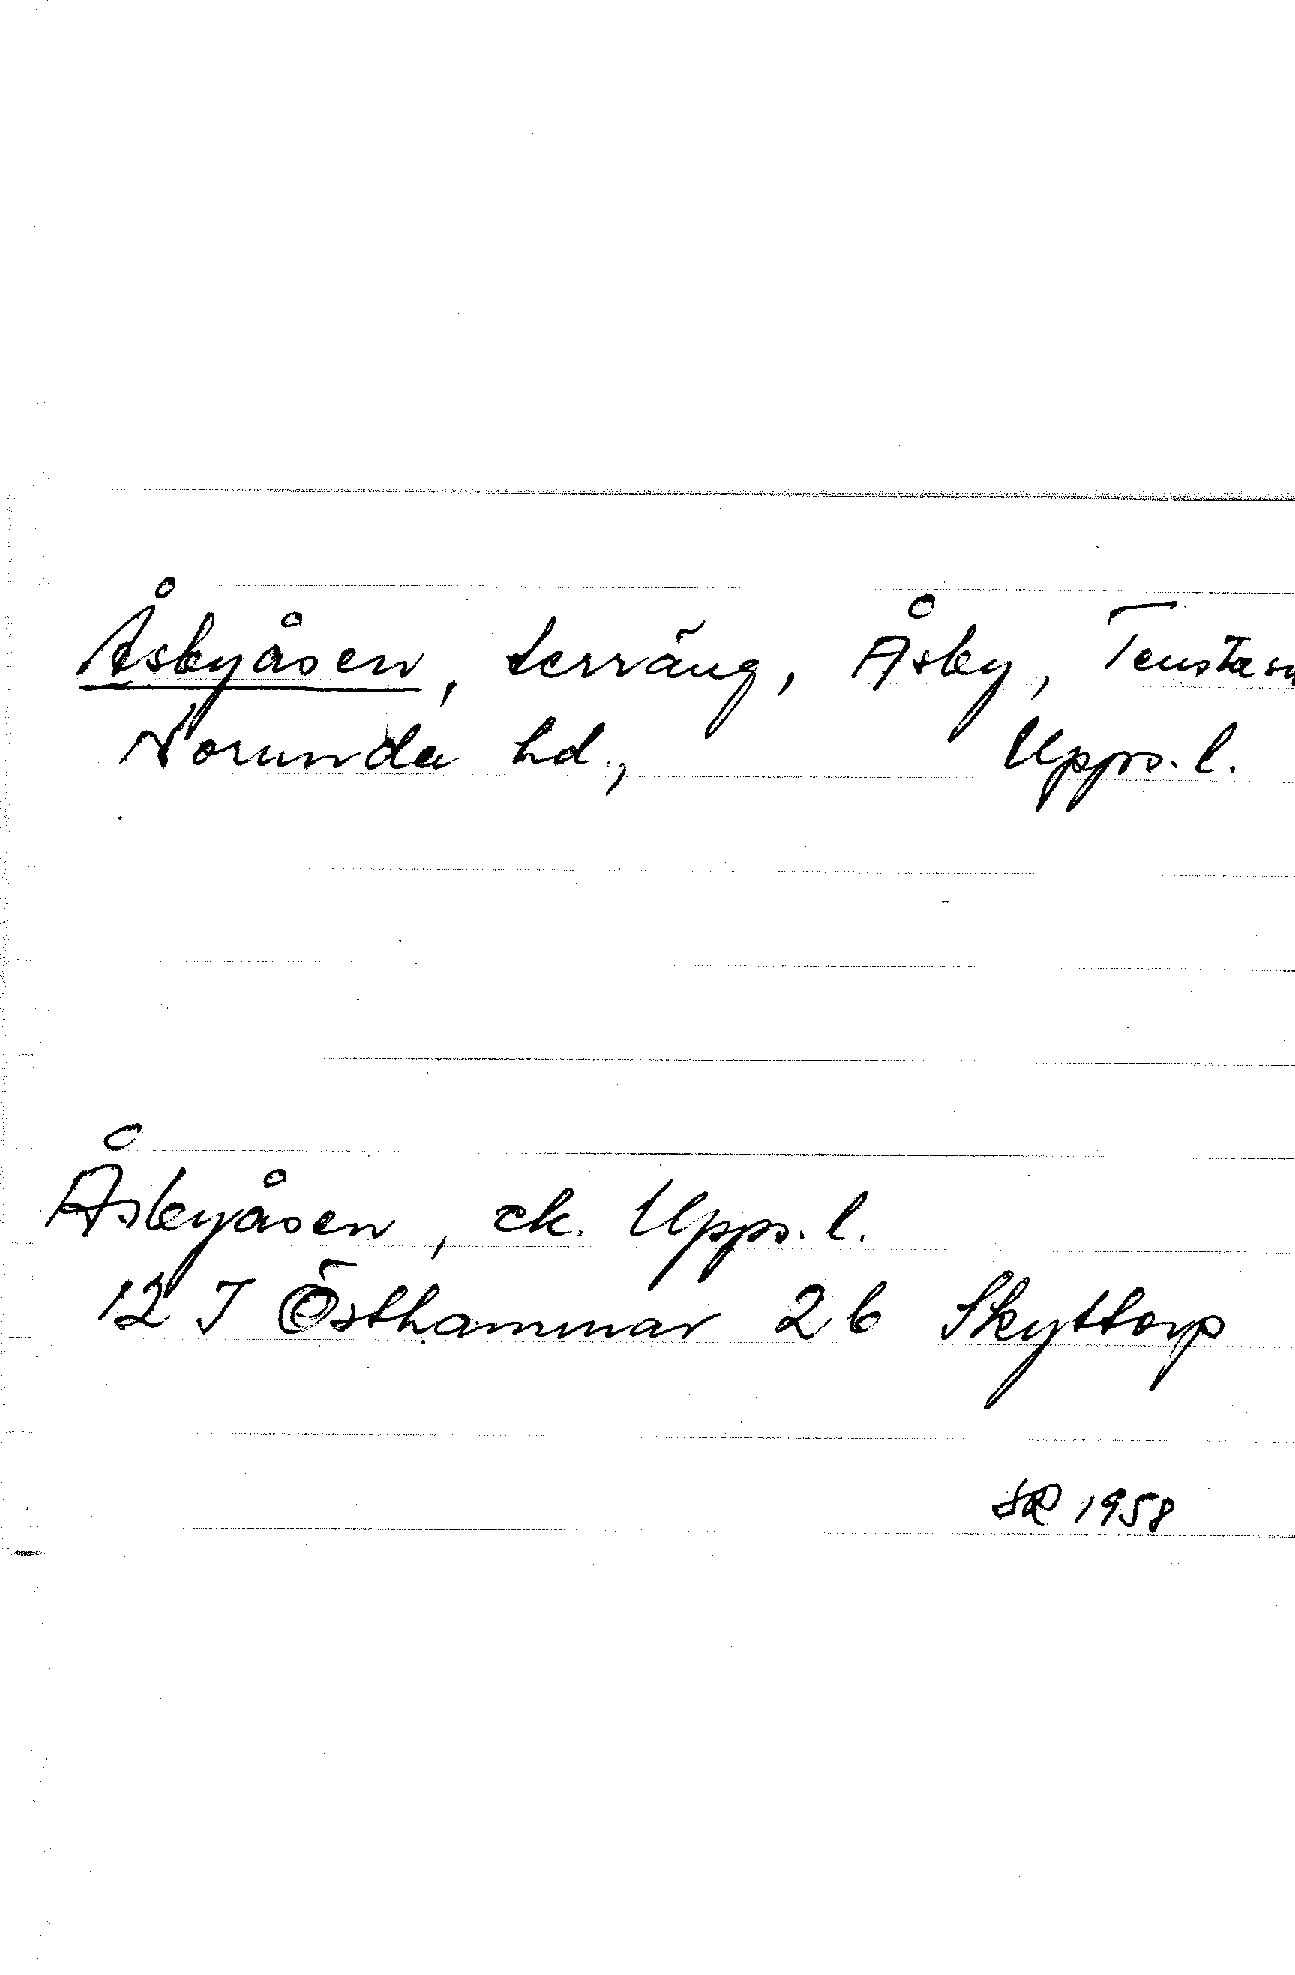 Åsbyåsen, terräng, Åsby, Tensta sn
Norunda hd., Upps. l.
Åsbyåsen, ek. Upps. l.
12 I Östhammar 2 b Skyttorp
SR 1958